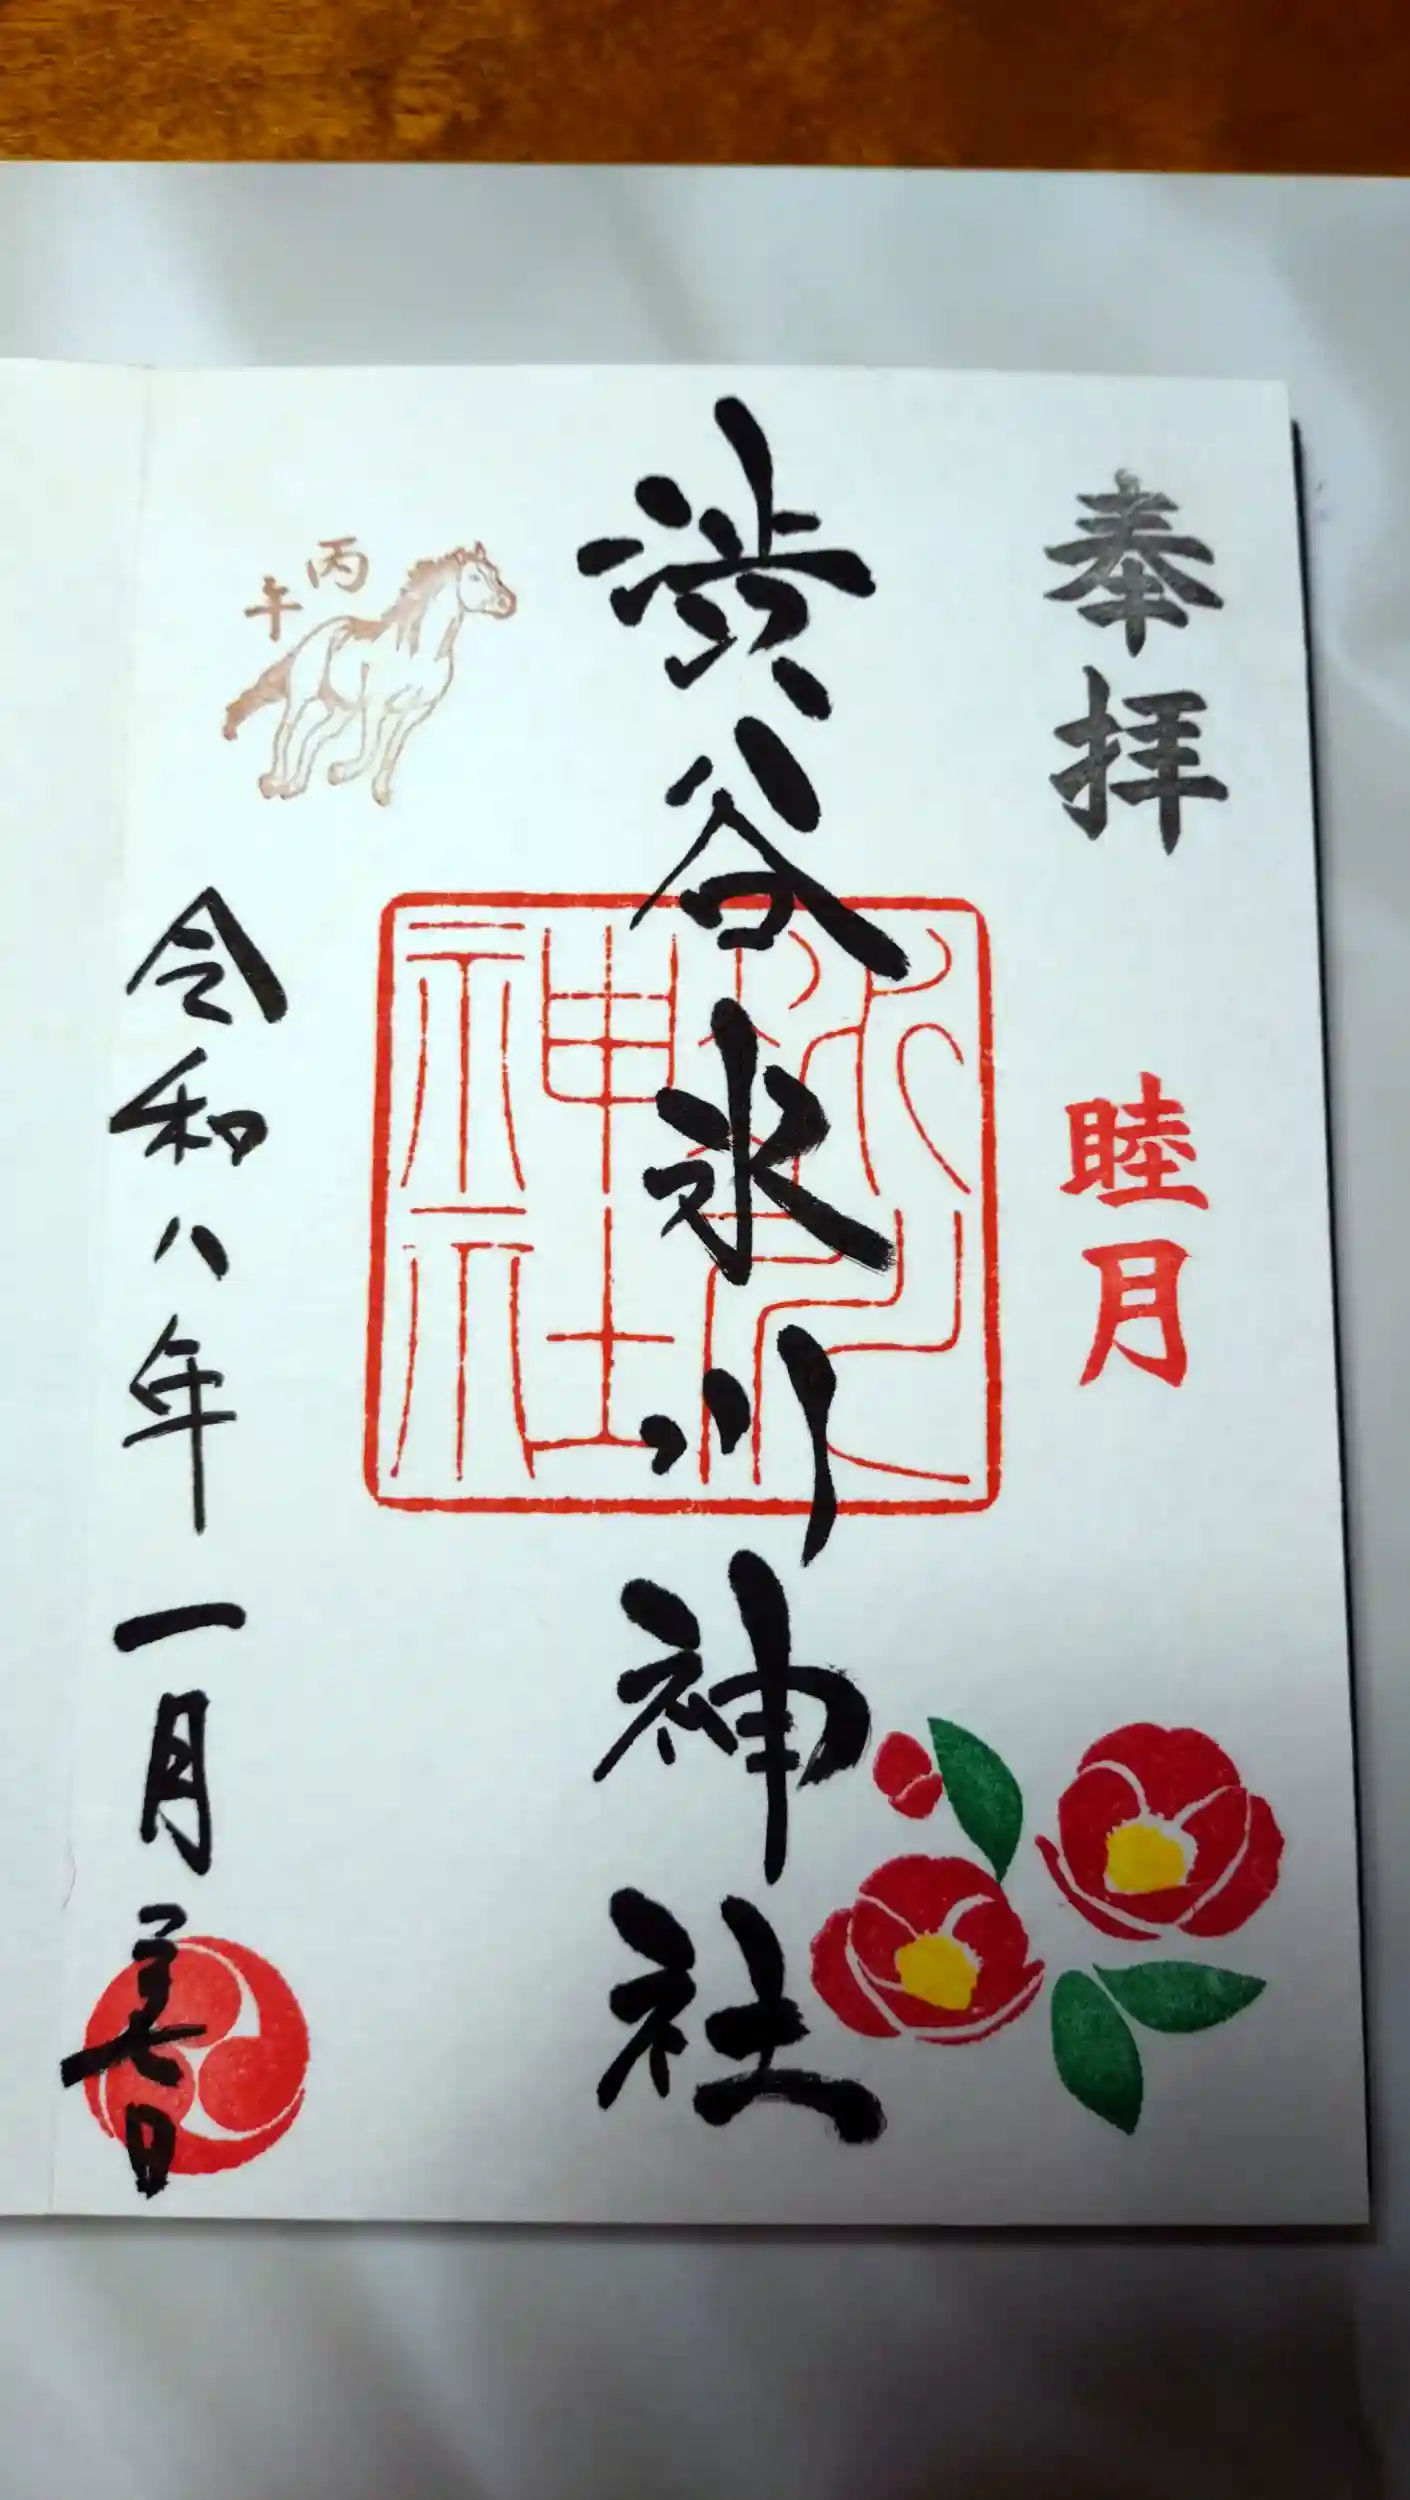 奉拝
睦月
渋谷氷川神社
冰川神社
丙午
令和八年一月二十七日